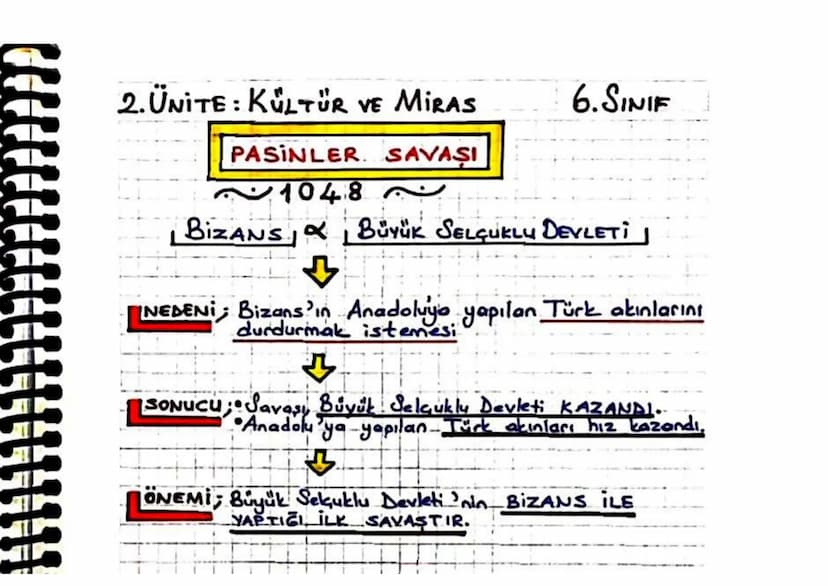 2. ÜNİTE: KÜLTÜR VE MİRAS 6. SINIF
PASİNLER SAVAŞI
1048
BİZANS α BÜYÜK SELÇUKLU DEVLETİ
NEDENİ; Bizans'ın Anadolu'ya yapılan Türk akınlarını
durdurmak istemesi
SONUCU; • Savaşı, Büyük Selçuklu Devleti KAZANDI.
• Anadolu'ya yapılan Türk akınları hız kazandı.
ÖNEMİ; Büyük Selçuklu Devleti'nin BİZANS İLE
YAPTIĞI İLK SAVAŞTIR.